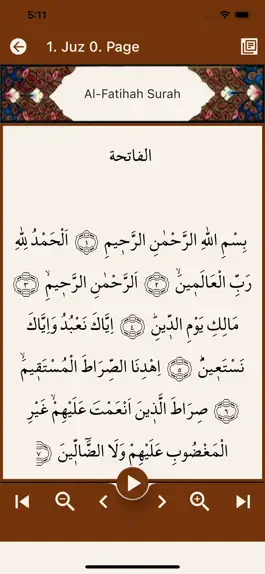 5:11
1. Juz 0. Page
Al-Fatihah Surah
الفاتحة
بِسْمِ اللّٰهِ الرَّحْمٰنِ الرَّح۪يمِ ﴿١﴾ اَلْحَمْدُ لِلّٰهِ
رَبِّ الْعَالَم۪ينَۙ ﴿٢﴾ اَلرَّحْمٰنِ الرَّح۪يمِۙ ﴿٣﴾
مَالِكِ يَوْمِ الدّ۪ينِۜ ﴿٤﴾ اِيَّاكَ نَعْبُدُ وَاِيَّاكَ
نَسْتَع۪ينُۜ ﴿٥﴾ اِهْدِنَا الصِّرَاطَ الْمُسْتَق۪يمَۙ
﴿٦﴾ صِرَاطَ الَّذ۪ينَ اَنْعَمْتَ عَلَيْهِمْۙ غَيْرِ
الْمَغْضُوبِ عَلَيْهِمْ وَلَا الضَّٓالّ۪ينَ ﴿٧﴾